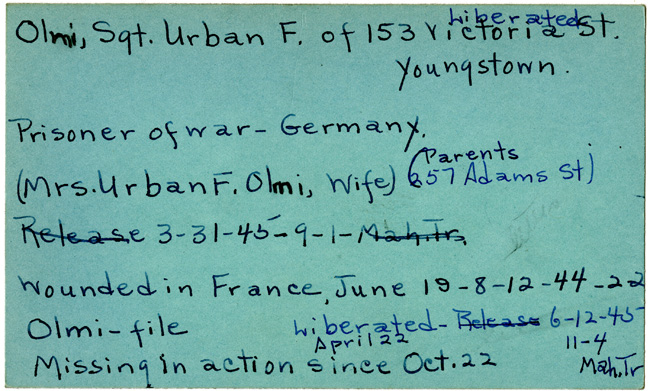 Liberated
Olmi, Sgt. Urban F. of 153 Victoria St.
Youngstown.
Prisoner of war - Germany.
(Mrs. Urban F. Olmi, Wife) (Parents
657 Adams St)
Release 3-31-45-9-1-Mah.Tr.
Wounded in France, June 19-8-12-44-22
Olmi-file Liberated- Release 6-12-45
April 22 11-4
Missing in action since Oct.22 Mah.Tr